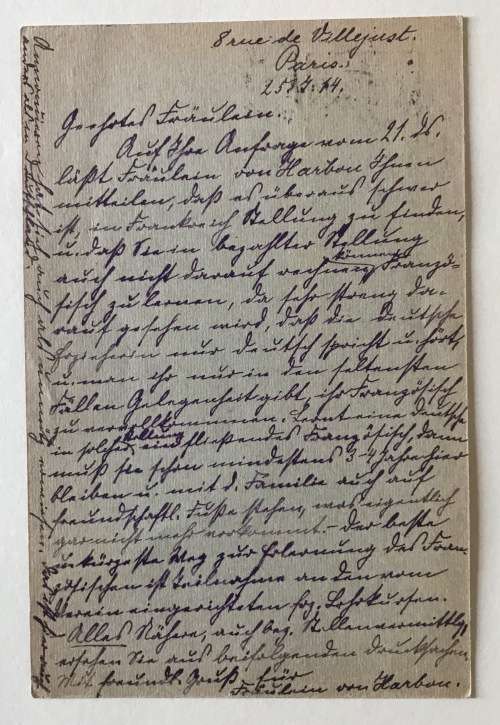 8 rue de Villejust.
Paris.
Geehrtes Fräulein.
Auf Ihre Anfrage vom 21. ds.
läßt Fräulein von Harbou Ihnen
mitteilen, daß es überaus schwer
ist, in Frankreich Stellung zu finden,
u. daß Sie in bezahlter Stellung
auch nicht darauf rechnen können Franzö-
sisch zu lernen, da sehr streng da-
rauf gesehen wird, daß die deutsche
Erzieherin nur deutsch spricht u. hört,
u. man ihr nur in den seltensten
Fällen Gelegenheit gibt, ihr Französisch
zu vervollkommnen. Lernt eine Deutsche
in solcher Stellung fließendes Französisch, dann
muß sie schon mindestens 3-4 Jahre hier
bleiben u. mit d. Familie auch auf
freundschaftl. Fuße stehen, was eigentlich
gar nicht mehr vorkommt. – Der beste
u. kürzeste Weg zur Erlernung des Fran-
zösischen ist Teilnahme an den vom
Verein eingerichteten frz. Lehrkursen.
Alles Nähere, auch bez. Stellenvermittlg.
ersehen Sie aus beifolgenden Drucksachen.
Mit freundl. Gruß für
Fräulein von Harbou.